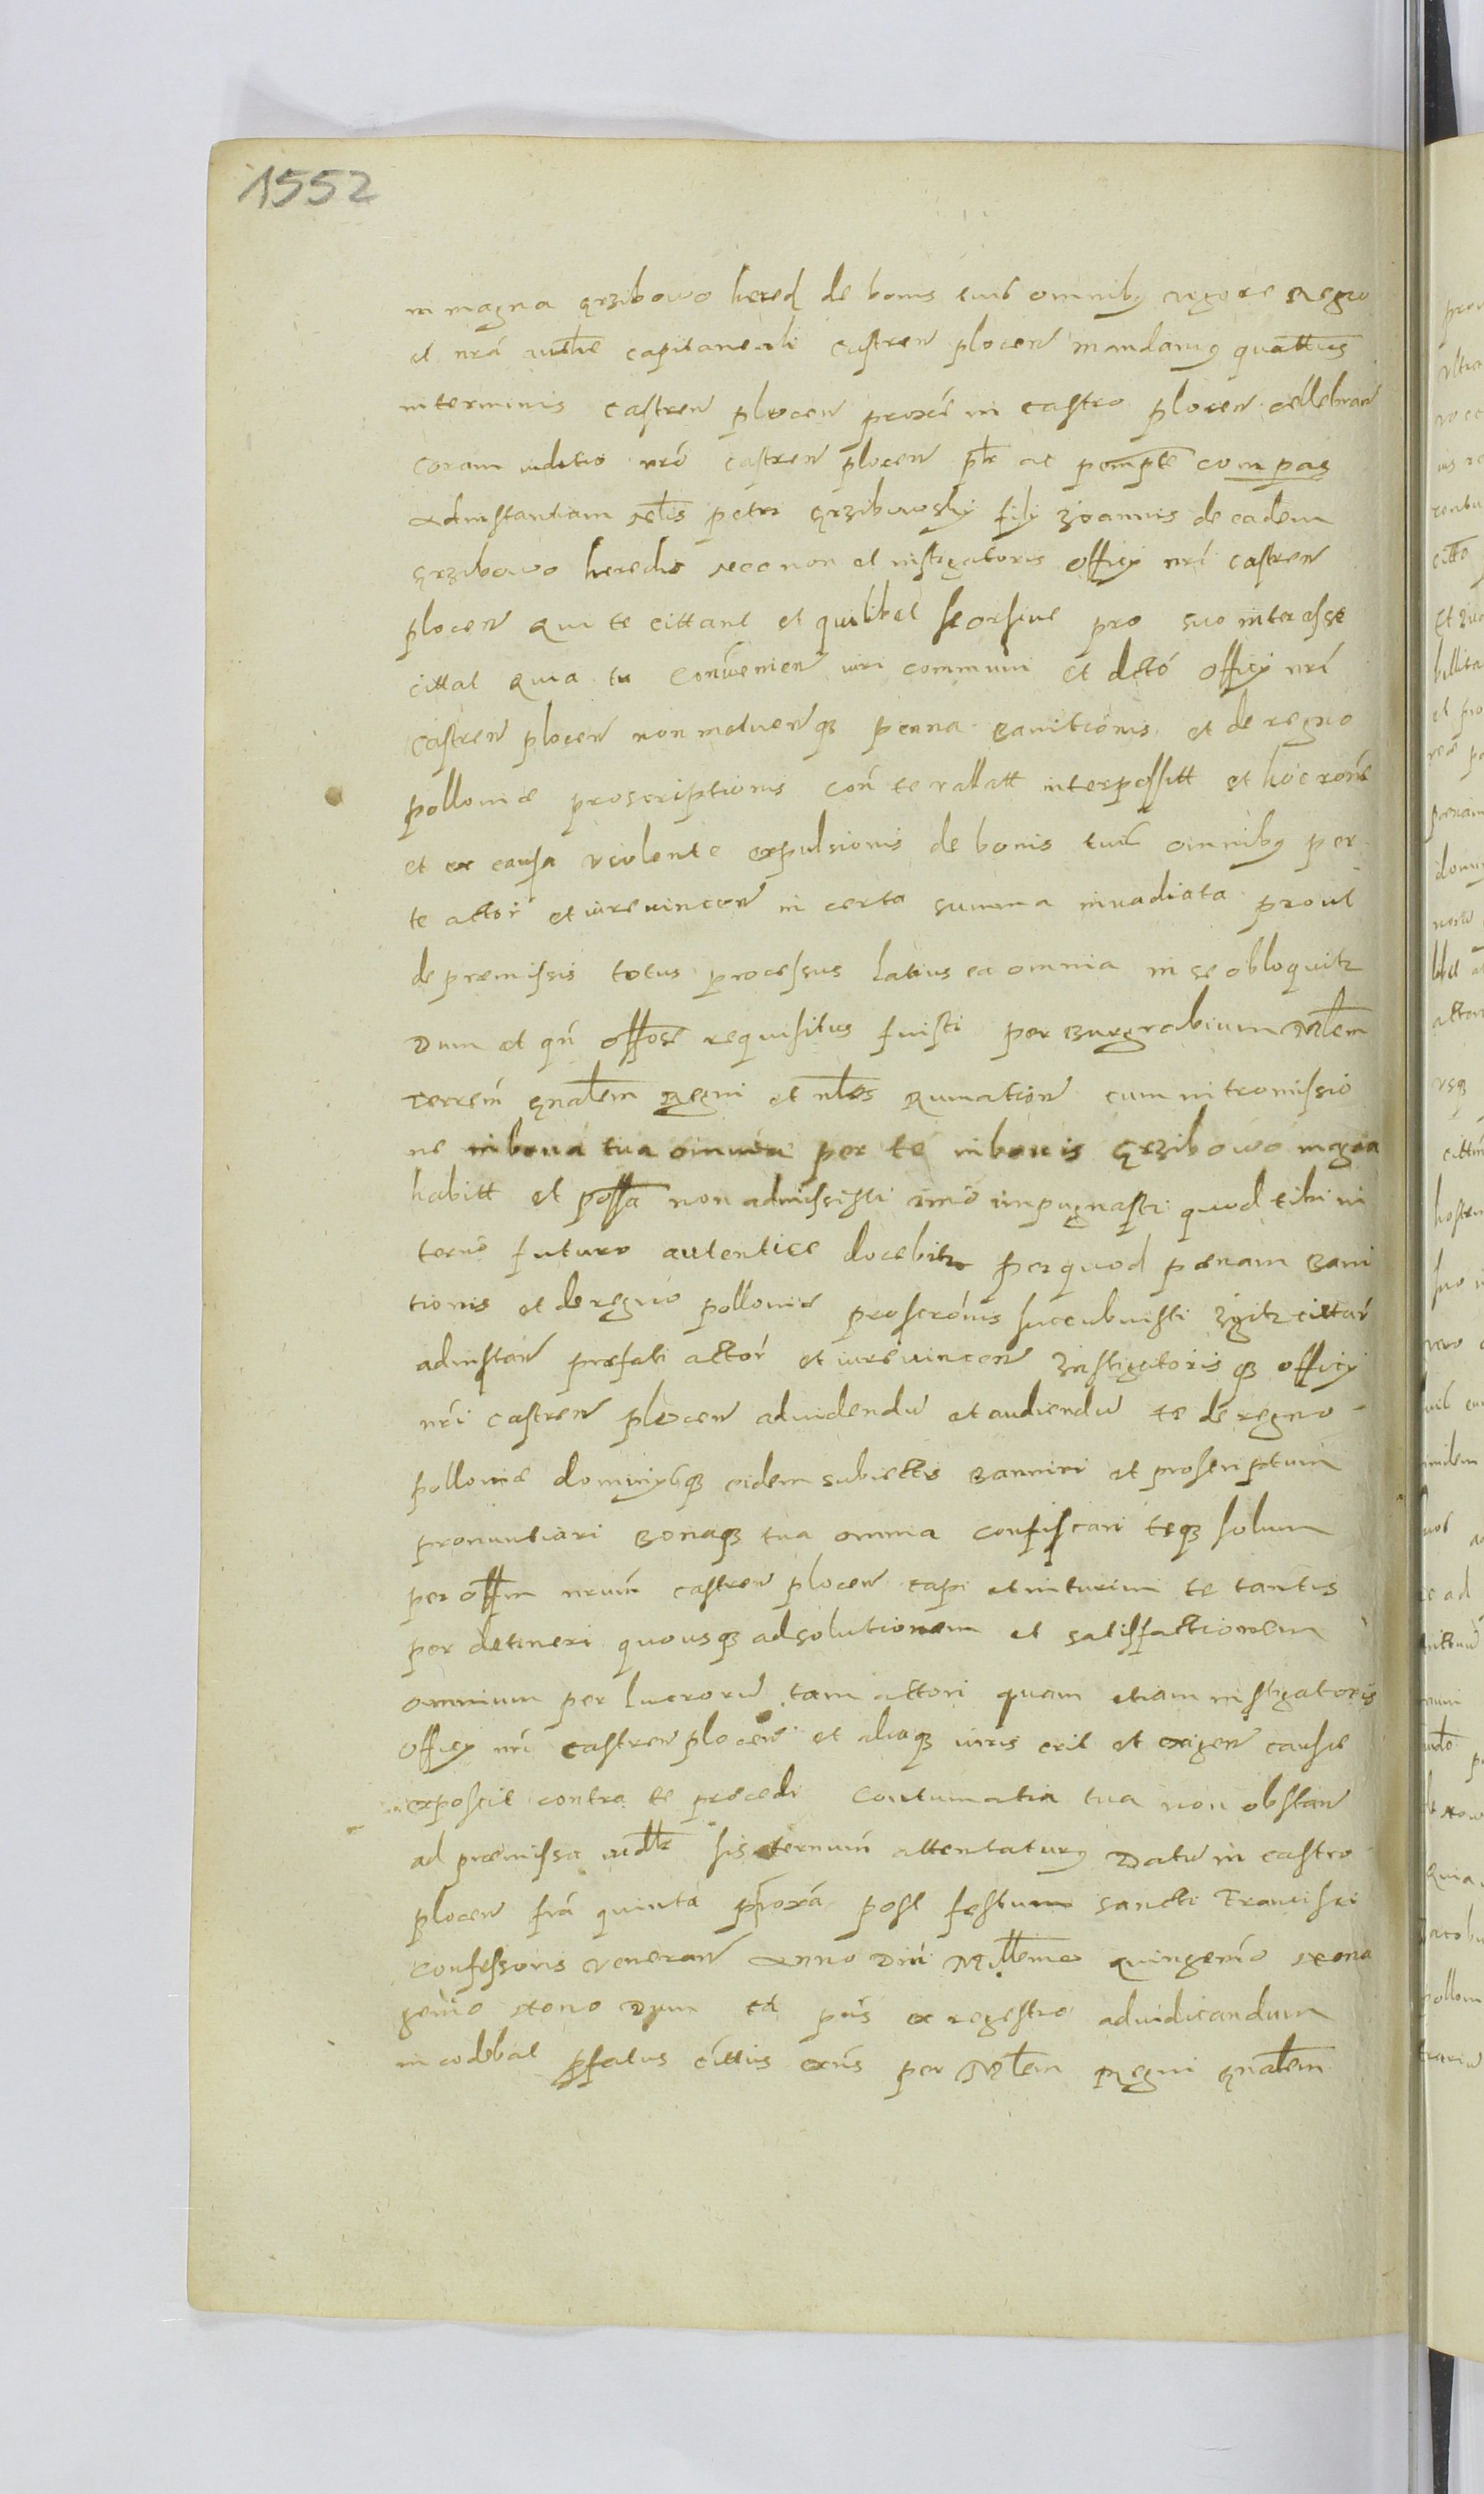 1552
in magna grzibowo hered de bonis tuis omnibus vigore Regio
et nrâ auctte capitaneali castren plocen mandamus quattus
in terminis castren plocen proxe in castro plocen cellebran
coram iuditio nrô castren plocen pltr ac perempte compas
Ad instantiam nobilis petri grzibowsky filij Joannis de eadem
grzibowo heredis nec non et instigatoris officij nrî castren
plocen qui te cittant et quilibet seorsive pro suo interesse
cittat quia tu Convenien iuri communi et dctô officij nrî
Castren plocen non metuenque penna banitionis et de regno
pollonie proscriptionis con te vallatt interpossitt et hoc rone
et ex causa violente expulsionis de bonis tuis omnibus per
te actori et iurevincen in certa summa invadiata prout
de premissis totus processus latius ea omnia in se obloquitr
Dum et qn offose requisitus fuisti per Burgrabium Mlem
terrem gnalem Regni et nobles Rumation cum intromissio
ne in bona tua omnia per te in bonis grzibowo magna
habitt et possa non admissisti imo impugnasti quod tibi in
termo futuro autentice docebitr per quod pænam bani
tionis et de regno pollonie proscronis succubuisti Igitr cittari
ad instan prefati actori et iurevincen Instigatorisque officij
nri castren plocen ad videndum et audiendum te de regno
pollonie dominysque eidem subiectis bannini et proscriptum
pronuntiari Bonaque tua omnia confiscari teque solum
per offm nrum castren plocen capi et in turim te tantis
per detineri quousque ad solutionem et satisfactionem
omnium per lucrorum tam actori quam etiam instigatoris
officij nri castren plocen et aliaque iuris erit et exigen causse
exposcit contra te procedi contumatia tua non obstan
ad premissa iudltr sis ternum attentaturus Datum in castro
plocen fria quinta proxa post festum sancti Francisci
confessoris veneran Anno Dni Millemo quingenmo nona
gemo nono Dum et pns ex regestro adiudicandum
incedebat prfatus cittus exns per Mlem Regni gnalem